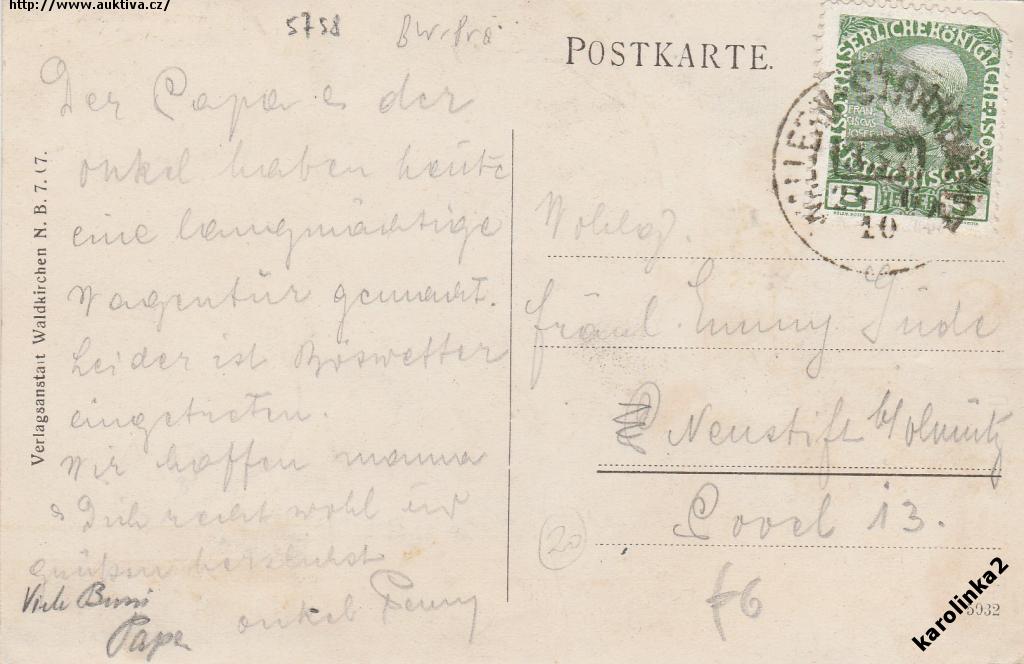 http://www.auktiva.cz/
5758
POSTKARTE.
Der Papa & der
onkel haben heute
eine langmächtige
Wagentür gemacht.
Leider ist Böswetter
eingetreten.
Wir hoffen mama
& Dich recht wohl und
grüßen herzlichst
onkel
Viele Bussi
Papa
Verlagsanstalt Waldkirchen N. B. 7. (7.
KAISERLICHE KÖNIGLICHE
HELLER
10
Wohlg.
Fräul. Emmy Gude
Neustift b/Olmütz
13.
20
f6
5932
karolinka2